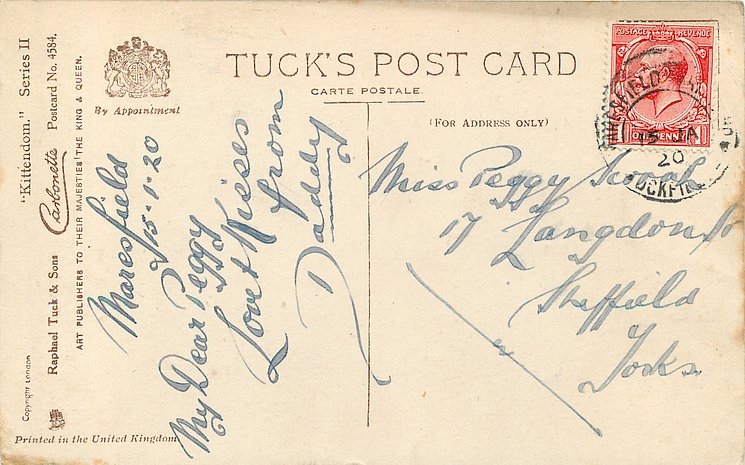 "Kittendom." Series II
Carbonette Postcard No. 4584.
Raphael Tuck & Sons
ART PUBLISHERS TO THEIR MAJESTIES THE KING & QUEEN.
Copyright London
By Appointment
Printed in the United Kingdom
TUCK'S POST CARD
CARTE POSTALE.
(FOR ADDRESS ONLY)
POSTAGE REVENUE
ONE PENNY
MARESFIELD
15 JA
20
UCKFI
Maresfield
15-1-20
My Dear Peggy
Love & Kisses
from
Daddy
Miss Peggy
17 Langdon St
Sheffield
Yorks